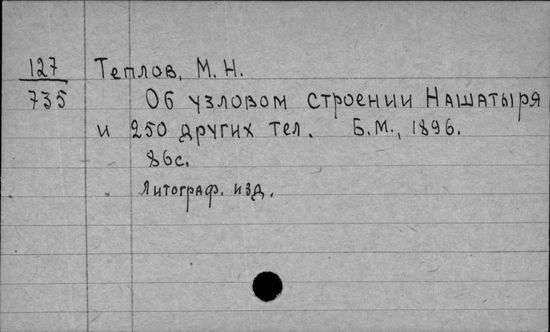 127 Теплов, М. Н.
735 Об узловом строении Нашатыря
и 250 других тел. Б.М., 1896.
86с.
Литограф. изд.